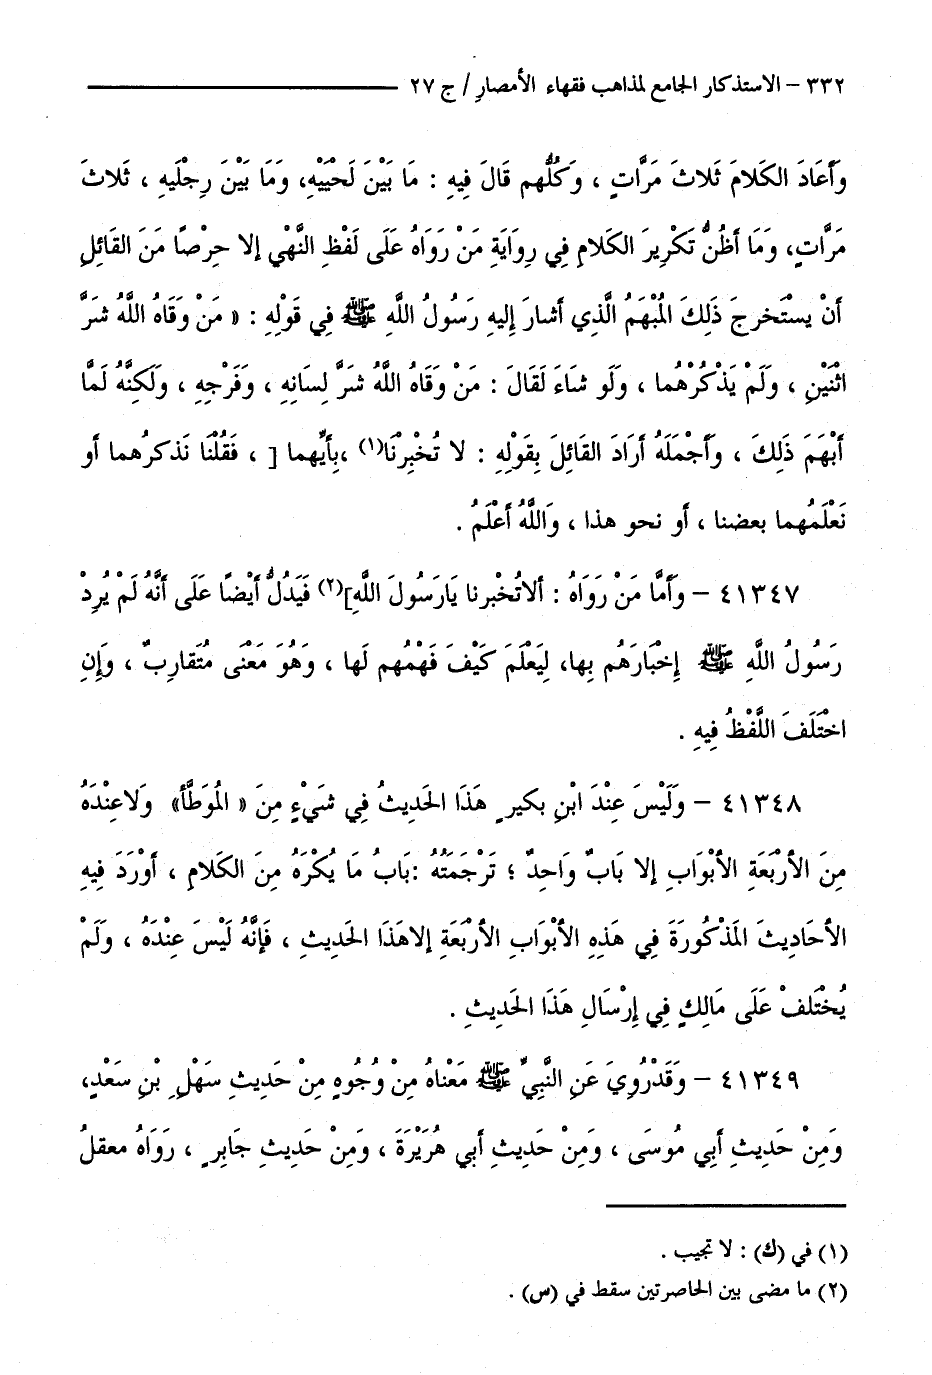 ٣٣٢ – الاستذكار الجامع لمذاهب فقهاء الأمصارِ / ج ٢٧
وَأَعَادَ الكَلامَ ثَلاثَ مَرَّاتٍ ، وَكُلُّهم قَالَ فِيهِ : مَا بَيْنَ لَحْيَيْهِ، وَمَا بَيْنَ رِجْلَيهِ ، ثَلاثَ
مَرَّاتٍ، وَمَا أَظُنُّ تَكْرِيرَ الكَلامِ فِي رِوَايَةِ مَنْ رَوَاهُ عَلَى لَفْظِ النَّهْيِ إلا حِرْصًا مَنَ القَائِلِ
أَنْ يسْتَخرِجَ ذَلِكَ المُبْهَمُ الَّذِي أشارَ إِليهِ رَسُولُ اللَّهِ ﷺ فِي قَوْلِهِ : « مَنْ وَقَاهُ اللَّهُ شرَّ
اثْنَيْنِ ، وَلَمْ يَذْكُرْهُما ، وَلَو شاءَ لَقَالَ : مَنْ وَقَاهُ اللَّهُ شرَّ لِسَانِهِ ، وَفَرْجِهِ ، وَلَكِنَّهُ لَمَّا
أَبْهَمَ ذَلِكَ ، وَأَجْمَلَهُ أَرَادَ القَائِلَ بِقَوْلِهِ : لا تُخْبِرْنَا(١) ،بِأَيِّهما [ ، فَقُلْنَا نَذكرُهما أو
نَعْلَمُهما بعضنا ، أو نحو هذا ، وَاللَّهُ أَعْلَمُ .
٤١٣٤٧ – وَأَمَّا مَنْ رَوَاهُ : ألاتُخبرنا يَارَسُولَ اللَّهِ](٢) فَيَدُلُّ أَيْضًا عَلَى أَنَّهُ لَمْ يُرِدْ
رَسُولُ اللَّهِ ﷺ إِخْبَارَهُم بِها، لِيَعْلَمَ كَيْفَ فَهْمُهم لَها ، وَهُوَ مَعْنَى مُتَقارِبٌ ، وَإِنِ
اخْتَلَفَ اللَّفْظُ فِيهِ .
٤١٣٤٨ – وَلَيْسَ عِنْدَ ابْنِ بكيرٍ هَذَا الحَدِيثُ فِي شَيْءٍ مِنَ « المُوَطَّأ» وَلاعِنْدَهُ
مِنَ الأَرْبَعَةِ الأَبْوَابِ إلا بَابٌ وَاحِدٌ ؛ تَرْجَمَتُهُ :بَابُ مَا يُكْرَهُ مِنَ الكَلامِ ، أَوْرَدَ فِيهِ
الأَحَادِيثَ المَذْكُورَةَ فِي هَذِهِ الأَبْوَابِ الأَرْبَعَةِ إلاهَذَا الحَدِيثِ ، فَإِنَّهُ لَيْسَ عِنْدَهُ ، وَلَمْ
يُخْتَلَفْ عَلَى مَالِكٍ فِي إِرْسَالِ هَذَا الحَدِيثِ .
٤١٣٤٩ – وَقَدْرُوِيَ عَنِ النَّبِيِّ ﷺ مَعْناهُ مِنْ وُجُوهٍ مِنْ حَدِيثِ سَهْلِ بْنِ سَعْدٍ،
وَمِنْ حَدِيثِ أَبِي مُوسَى ، وَمِنْ حَدِيثِ أَبِي هُرَيْرَةَ ، وَمِنْ حَدِيثِ جَابِرٍ ، رَوَاهُ معقلُ
(١) في (ك) : لا تجيب .
(٢) ما مضى بين الحاصرتين سقط في (س) .